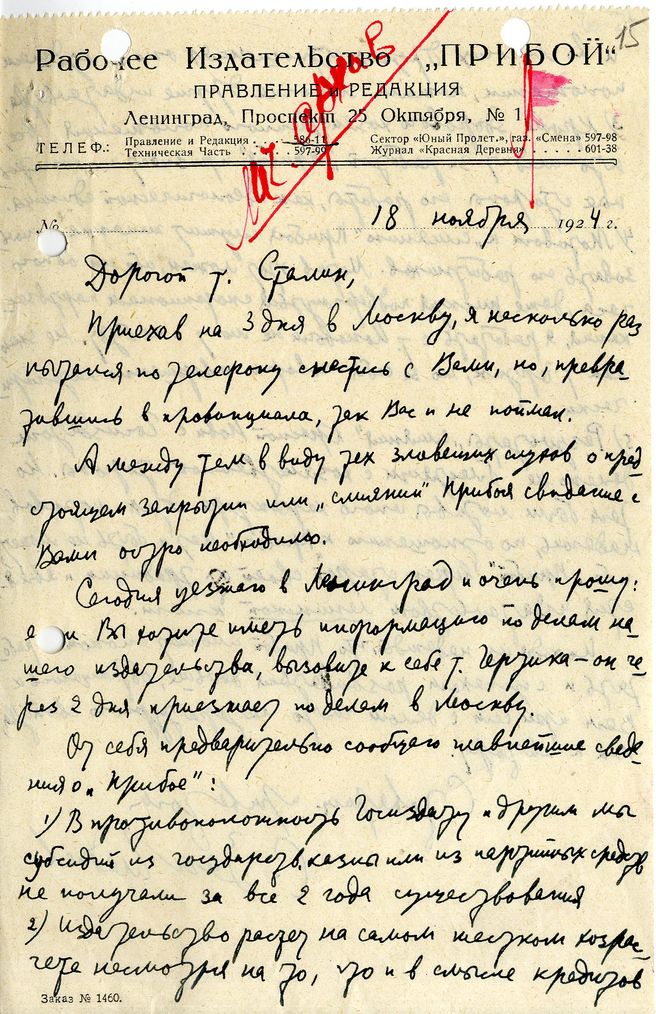 15
Рабочее Издательство „ПРИБОЙ“
ПРАВЛЕНИЕ и РЕДАКЦИЯ
Ленинград, Проспект 25 Октября, № 1
ТЕЛЕФ.: Правление и Редакция . . . 586-11 Сектор «Юный Пролет.», газ. «Смена» 597-98
Техническая Часть . . . . 597-99 Журнал «Красная Деревня» . . . . . 601-38
№ 18 ноября 1924 г.
Дорогой т. Сталин,
Приехав на 3 дня в Москву, я несколько раз
пытался по телефону снестись с Вами, но, превра-
тившись в провинциала, так Вас и не поймал.
А между тем в виду тех зловещих слухов о пред-
стоящем закрытии или „слиянии“ Прибоя свидание с
Вами остро необходимо.
Сегодня уезжаю в Ленинград и очень прошу:
если Вы хотите иметь информацию по делам на-
шего издательства, вызовите к себе т. Герзика — он че-
рез 2 дня приезжает по делам в Москву.
От себя предварительно сообщаю главнейшие сведе-
ния о „Прибое“:
1) В противоположность Госиздату и другим мы
субсидий из государств. казны или из партийных средств
не получали за все 2 года существования
2) Издательство растет на самом жестком хозрас-
чете несмотря на то, что и в смысле кредитов
Заказ № 1460.